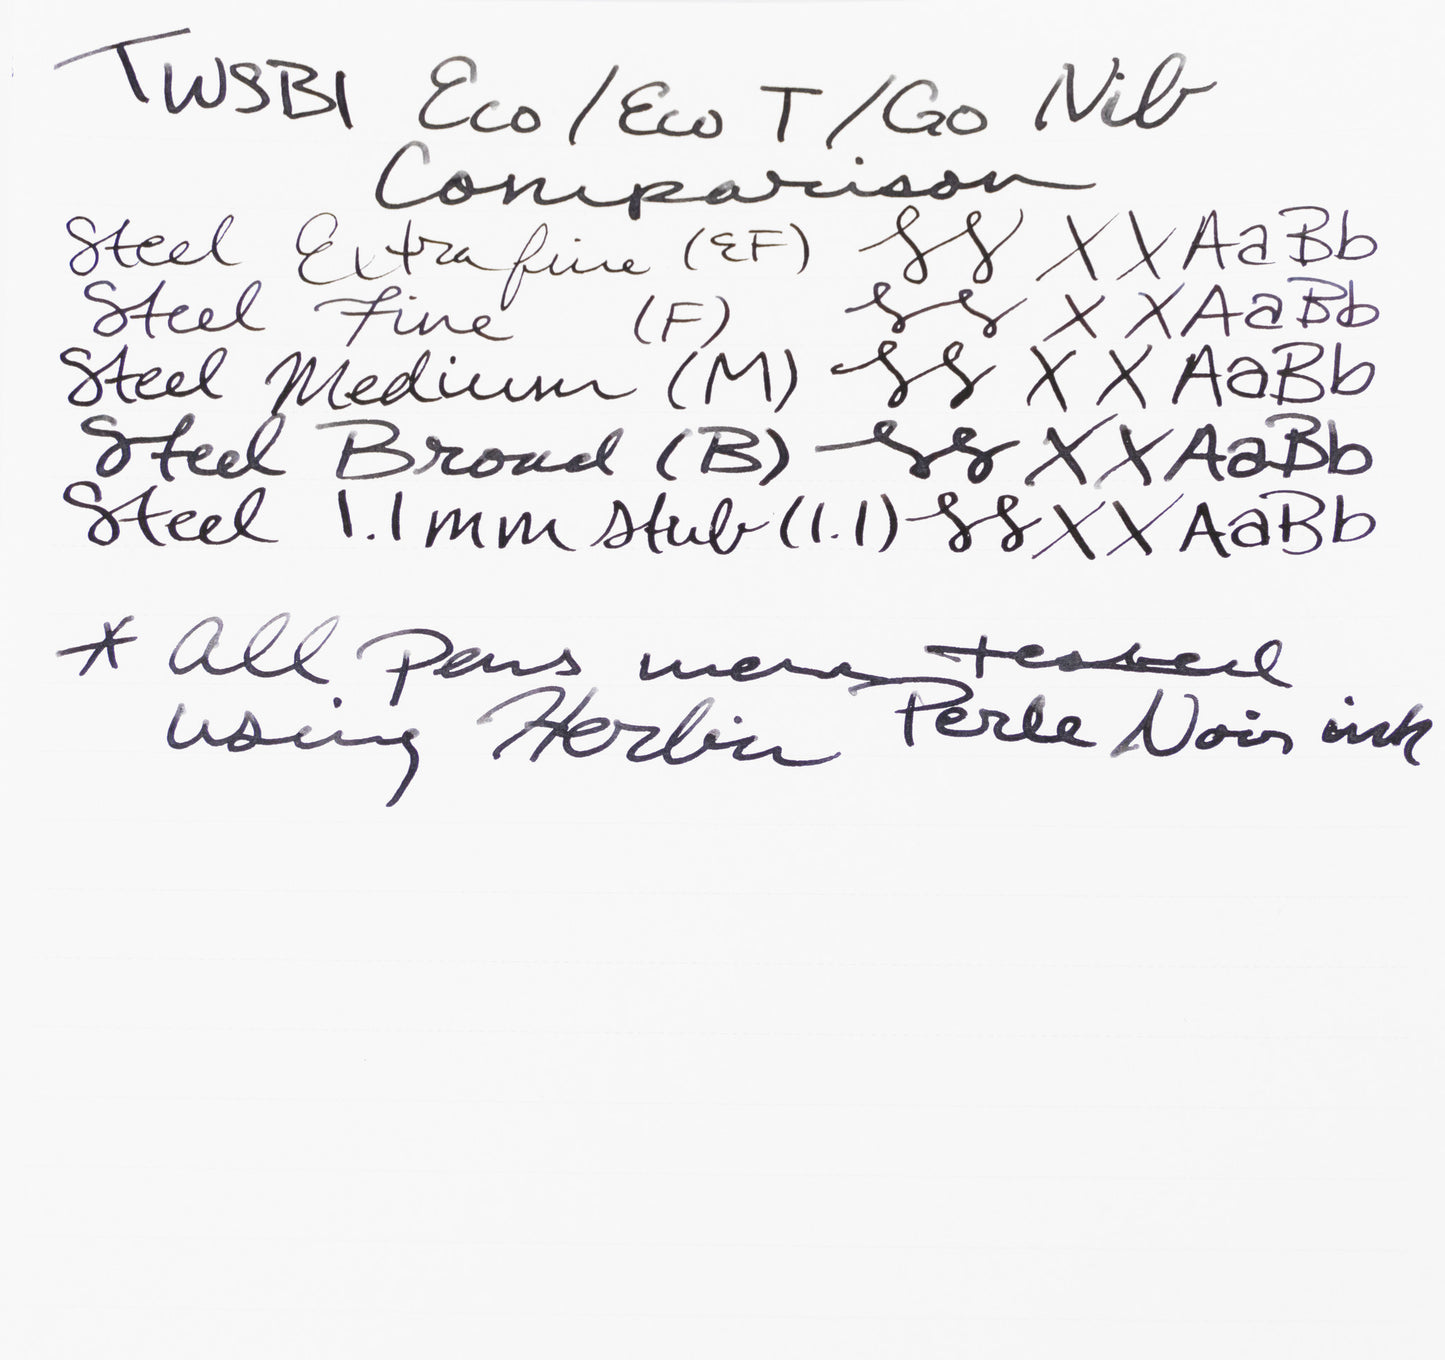 TWSBI Eco/Eco T/Go Nib
Comparison
Steel Extra fine (EF) SS X X AaBb
Steel Fine (F) SS X X AaBb
Steel Medium (M) SS X X AaBb
Steel Broad (B) SS X X AaBb
Steel 1.1mm stub (1.1) SS X X AaBb
* All pens were tested
using Herbin Perle Noir ink